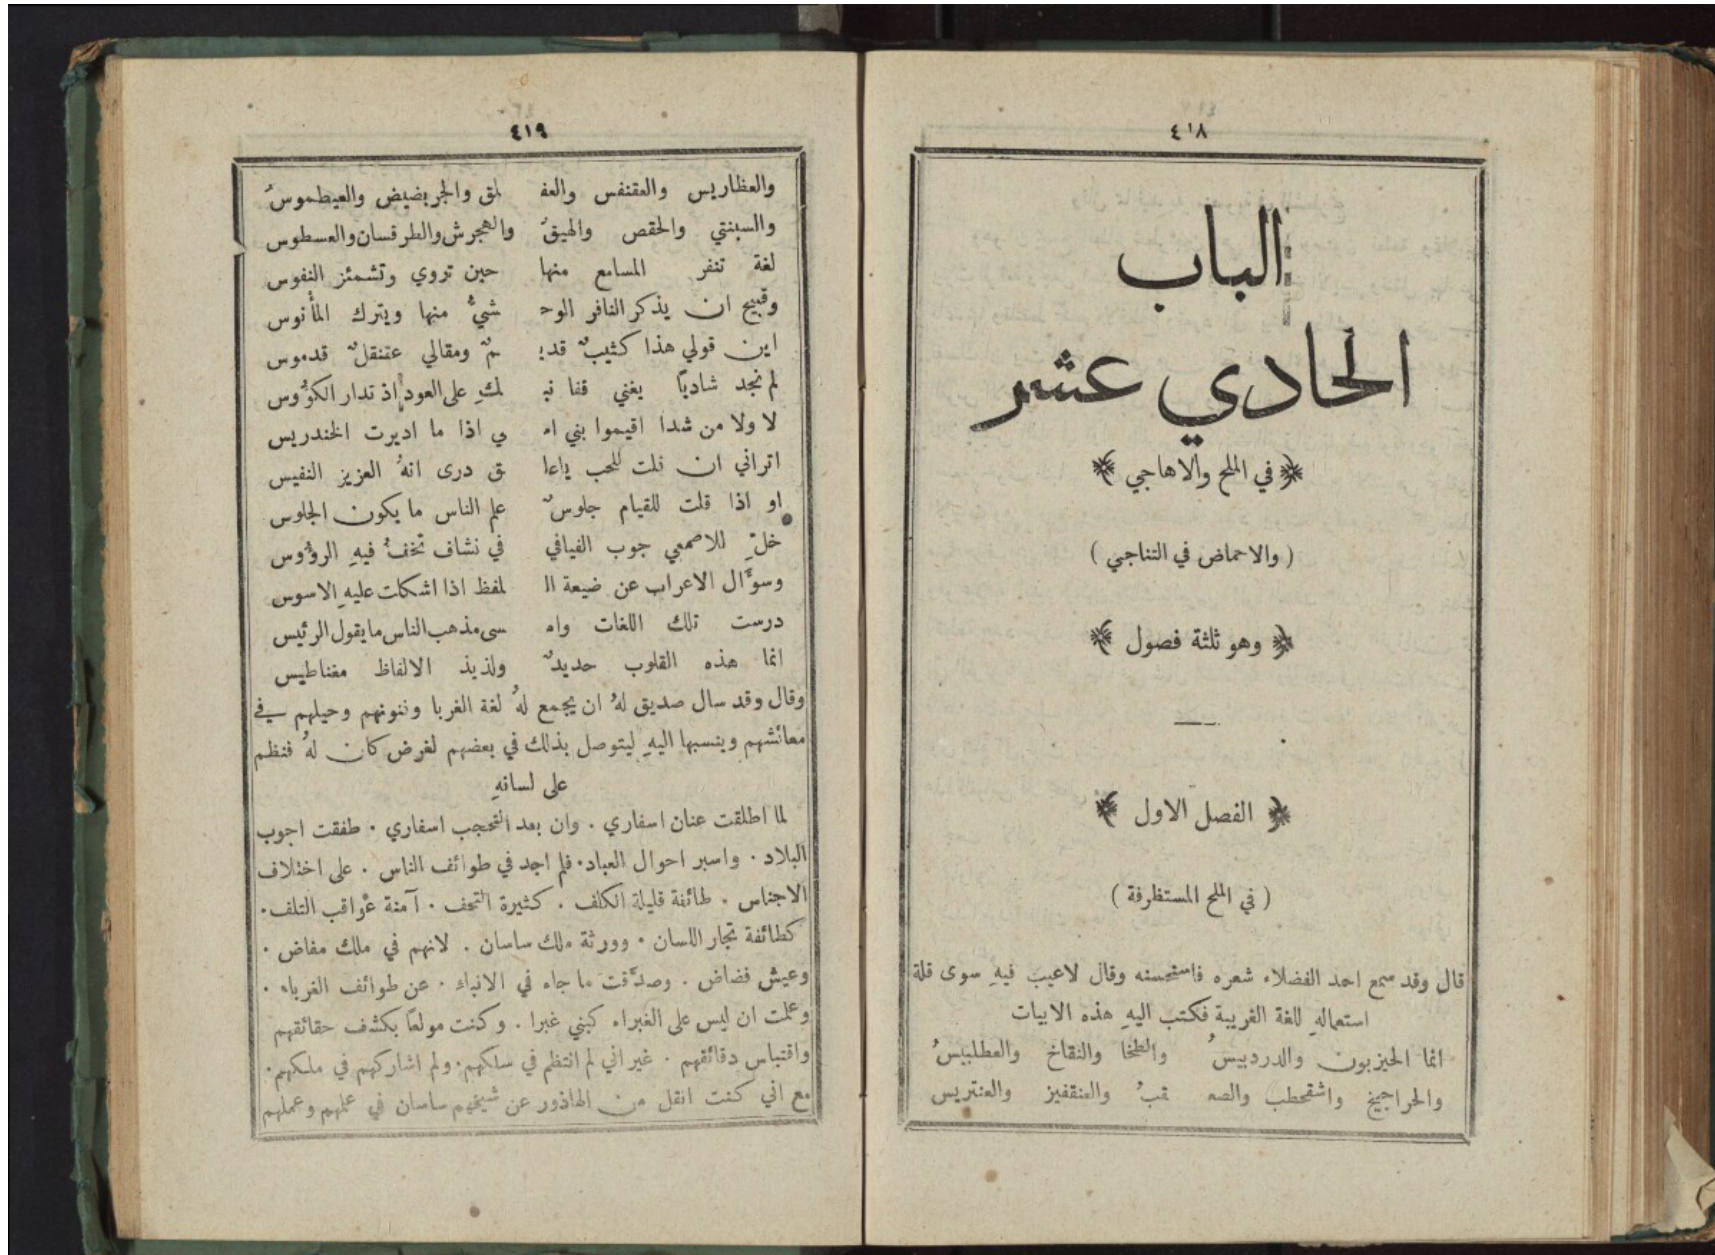 ٤١٨
الباب
الحادي عشر
في الملح والاهاجي
( والاحماض في التناجي )
وهو ثلثة فصول
الفصل الاول
( في الملح المستظرفة )
قال وقد سمع احد الفضلاء شعره فاستحسنه وقال لاعيب فيهِ سوى قلة
استعمالهِ للغة الغريبة فكتب اليهِ هذه الابيات
انما الحيزبون والدردبيسُ والطخا والنقاخ والعطلبيسُ
والحراجيج واشقحطب والصعـ ـقبُ والعنقفيز والعنتريس
٤١٩
والعظاريس والعقنفس والعفـ ـلمق والجربضيض والعيطموسُ
والسبنتي والحقص والهيقُ والهجرش والطرقسان والعسطوس
لغة تنفر المسامع منها حين تروي وتشمئز النفوس
وقبيح ان يذكر النافر الوحـ ـشيُّ منها ويترك المأنوس
اين قولي هذا كثيبٌ قديـ ـمٌ ومقالي عقنقلٌ قدموس
لم نجد شاديًا يغني قفا نبـ ـكِ على العود اذ تدار الكؤُوس
لا ولا من شدا اقيموا بني امـ ـي اذا ما اديرت الخندريس
اتراني ان قلت للحب ياعلـ ـق درى انهُ العزيز النفيس
او اذا قلت للقيام جلوسٌ علم الناس ما يكون الجلوس
خلِّ للاصمعي جوب الفيافي في نشاف تخفُّ فيهِ الروُّوس
وسوَّال الاعراب عن ضيعة الـ ـلفظ اذا اشكلت عليهِ الاسوس
درست تلك اللغات وامـ ـسى مذهب الناس ما يقول الرئيس
انما هذه القلوب حديدٌ ولذيذ الالفاظ مغناطيس
وقال وقد سال صديق لهُ ان يجمع لهُ لغة الغربا وفنونهم وحيلهم في
معائشهم وينسبها اليهِ ليتوصل بذلك في بعضهم لغرض كان لهُ فنظم
على لسانهِ
لما اطلقت عنان اسفاري . وان بعد التحجب اسفاري . طفقت اجوب
البلاد . واسبر احوال العباد . فلم اجد في طوائف الناس . على اختلاف
الاجناس . طائفة قليلة الكلف . كثيرة التحف . آمنة عواقب التلف .
كطائفة تجار اللسان . وورثة ملك ساسان . لانهم في ملك مفاض .
وعيش فضاض . وصدَّقت ما جاء في الانباء . عن طوائف الغرباء .
وعلمت ان ليس على الغبراء كبني غبرا . وكنت مولعًا بكشف حقائقهم
واقتباس دقائقهم . غير اني لم انتظم في سلكهم . ولم اشاركهم في ملكهم .
مع اني كنت انقل من الهاذور عن شيخهم ساسان في علمهم وعملهم